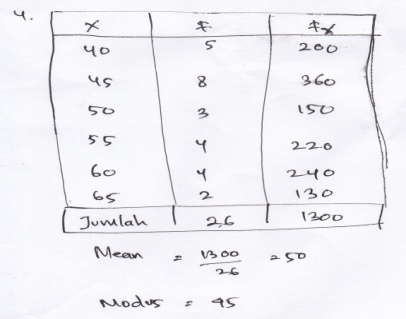 4.
x f fx
40 5 200
45 8 360
50 3 150
55 4 220
60 4 240
65 2 130
Jumlah 26 1300
Mean = 1300/26 = 50
Modus = 45